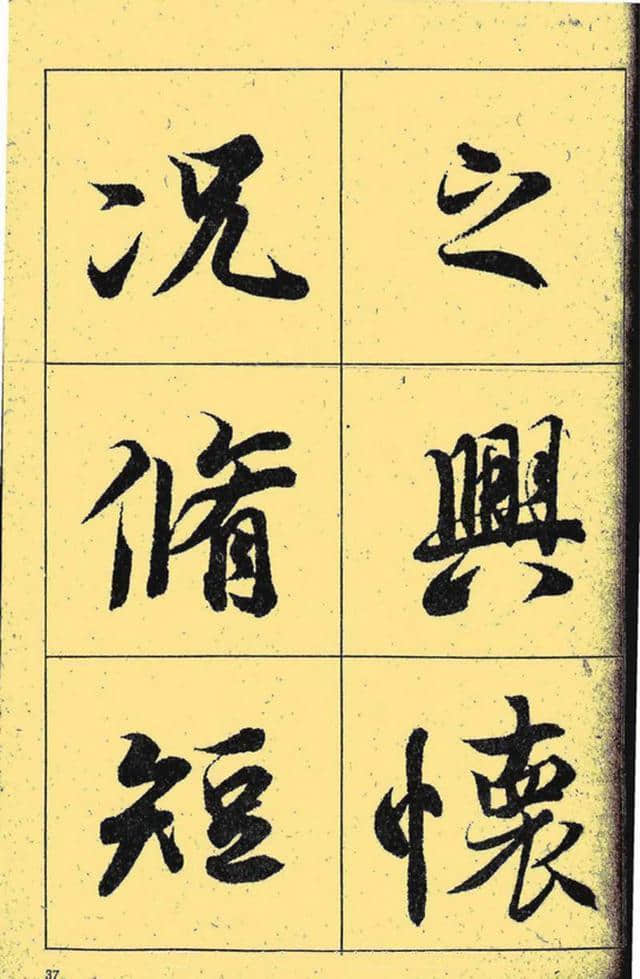 之興懷
况脩短
37